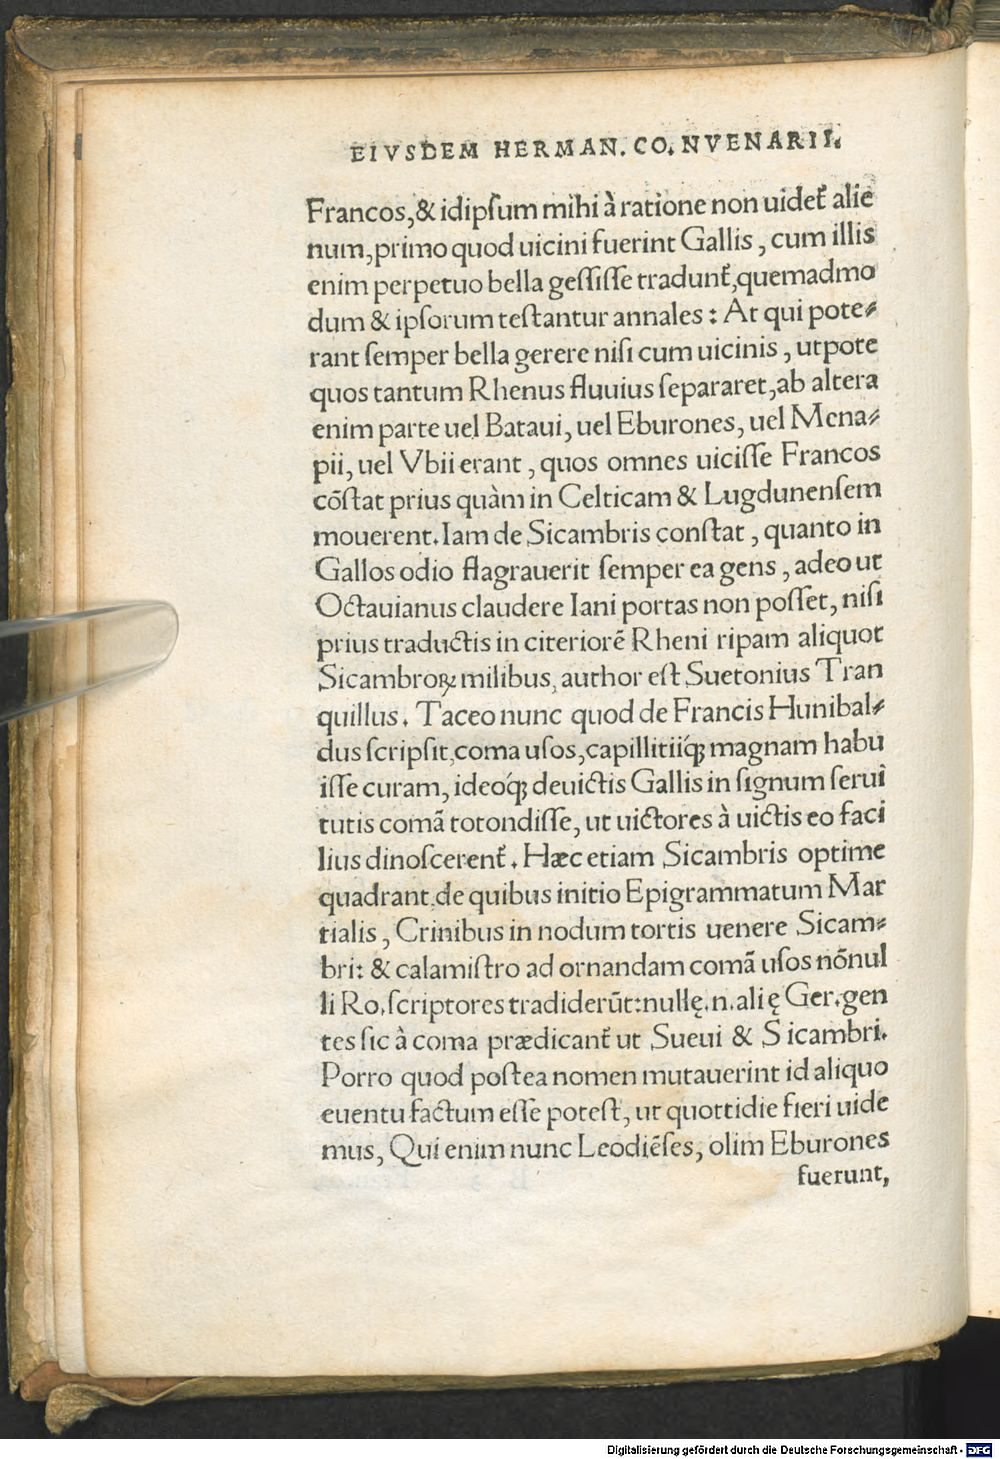 EIVSDEM HERMAN. CO. NVENARII.
Francos, & idipſum mihi à ratione non uidet᷑ alie
num, primo quod uicini fuerint Gallis, cum illis
enim perpetuo bella geſſiſſe tradunt᷑, quemadmo
dum & ipſorum teſtantur annales: At qui pote⸗
rant ſemper bella gerere niſi cum uicinis, utpote
quos tantum Rhenus fluuius ſepararet, ab altera
enim parte uel Bataui, uel Eburones, uel Mena⸗
pii, uel Vbii erant, quos omnes uiciſſe Francos
cõſtat prius quàm in Celticam & Lugdunenſem
mouerent. Iam de Sicambris conſtat, quanto in
Gallos odio flagrauerit ſemper ea gens, adeo ut
Octauianus claudere Iani portas non poſſet, niſi
prius traductis in citeriorẽ Rheni ripam aliquot
Sicambroꝝ milibus, author eſt Suetonius Tran
quillus. Taceo nunc quod de Francis Hunibal⸗
dus ſcripſit, coma uſos, capillitiiq́ꝫ magnam habu
iſſe curam, ideoq́ꝫ deuictis Gallis in ſignum ſerui
tutis comã totondiſſe, ut uictores à uictis eo faci
lius dinoſcerent᷑. Hæc etiam Sicambris optime
quadrant, de quibus initio Epigrammatum Mar
tialis, Crinibus in nodum tortis uenere Sicam⸗
bri: & calamiſtro ad ornandam comã uſos nõnul
li Ro. ſcriptores tradiderũt: nullę. n. alię Ger. gen
tes ſic à coma prædicant᷑ ut Sueui & Sicambri.
Porro quod poſtea nomen mutauerint id aliquo
euentu factum eſſe poteſt, ut quottidie fieri uide
mus, Qui enim nunc Leodiẽſes, olim Eburones
fuerunt,
Digitalisierung gefördert durch die Deutsche Forschungsgemeinschaft - DFG